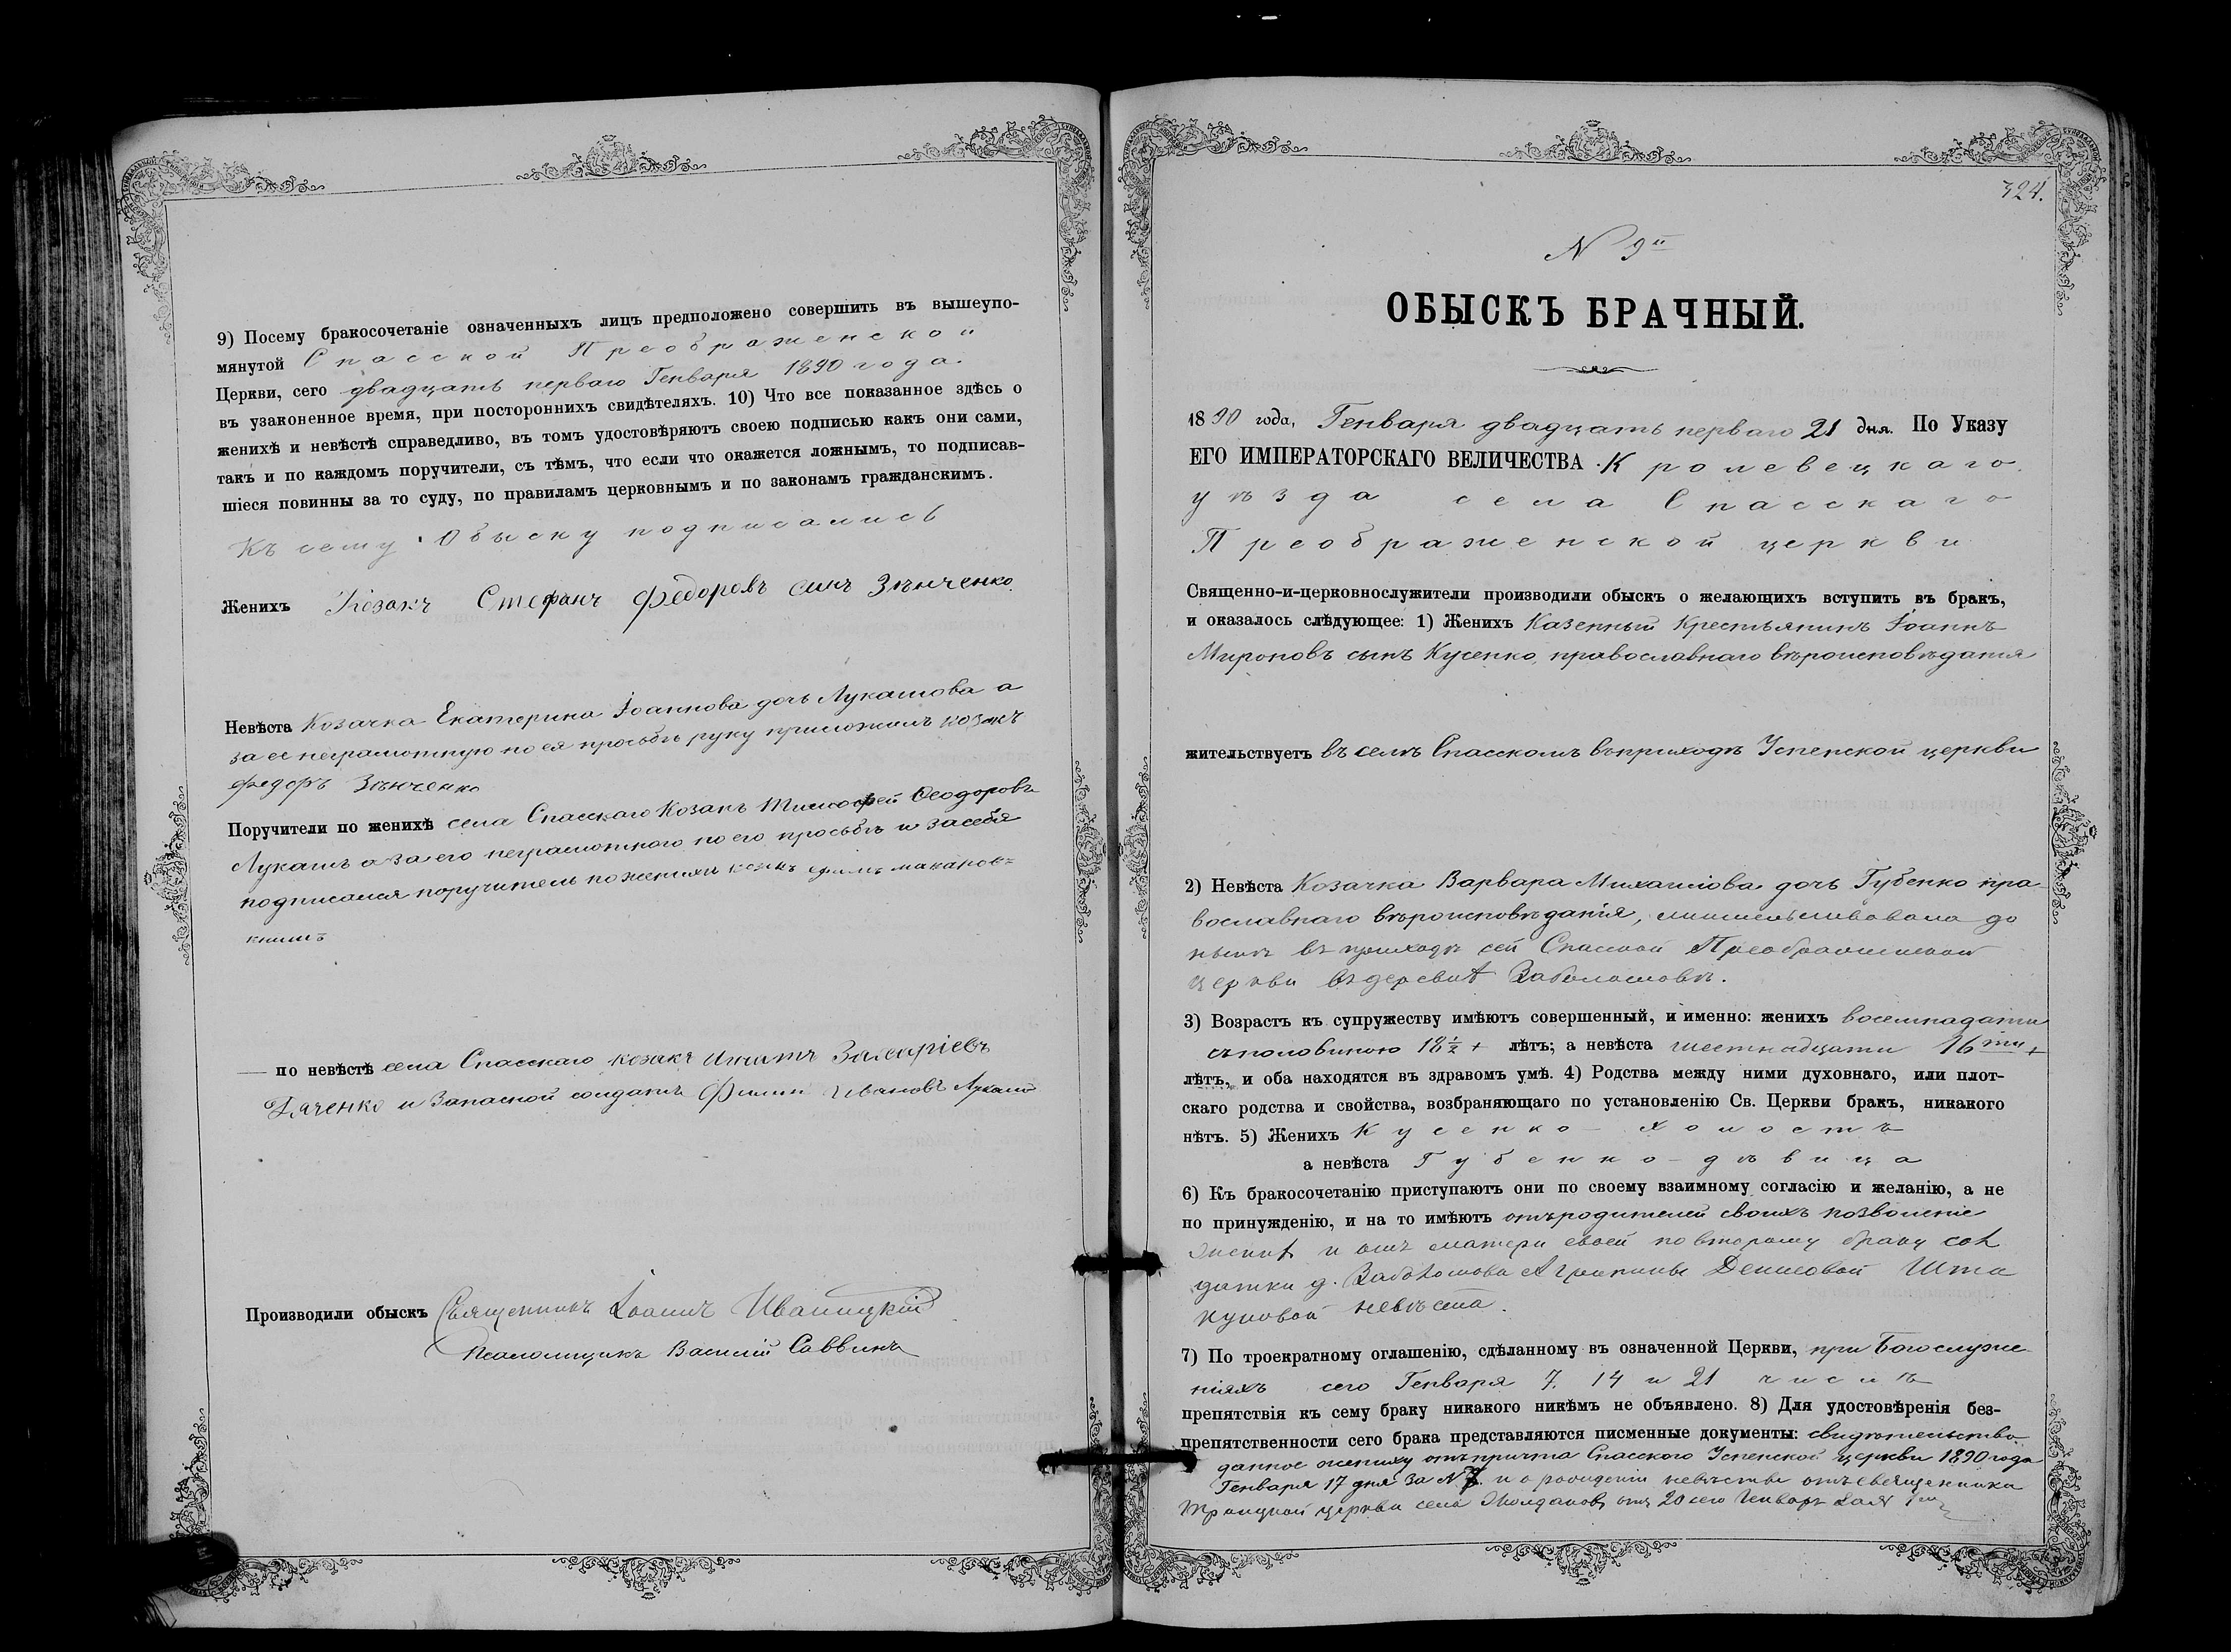 9) Посему бракосочетаніе означенныхъ лицъ предположено совершить въ вышеупо-
мянутой Спасской Преображенской
Церкви, сего двадцать перваго Генваря 1890 года.
въ узаконенное время, при постороннихъ свидѣтеляхъ. 10) Что все показанное здѣсь о
женихѣ и невѣстѣ справедливо, въ томъ удостовѣряютъ своею подписью какъ они сами,
такъ и по каждомъ поручители, съ тѣмъ, что если что окажется ложнымъ, то подписав-
шіеся повинны за то суду, по правиламъ церковнымъ и по законамъ гражданскимъ.
Къ сему Обыску подписались
Женихъ Козакъ Стефанъ Федоровъ синъ Зѣнченко.
Невѣста Козачка Екатерина Іоаннова дочь Лукашова а
за ее неграмотную по ея просьбѣ руку приложилъ козакъ
Федоръ Зѣнченко
Поручители по женихѣ села Спасскаго Козакъ Тимофей Ѳеодоровъ
Лукашъ а за его неграмотного по его просьбѣ и за себя
подписался поручитель по женихи козакъ
по невѣстѣ села Спасскаго козакъ Игнатъ Захаріевъ
Дяченко и Запасной солдатъ Филип Ивановъ Лукаш
Производили обыскъ Священникъ Іоаннъ Иваницкій
Псаломщикъ Василій Саввинъ
324.
N 9й
ОБЫСКЪ БРАЧНЫЙ.
1890 года, Генваря двадцать перваго 21 дня. По Указу
ЕГО ИМПЕРАТОРСКАГО ВЕЛИЧЕСТВА Кролевецкаго
уѣзда села Спасскаго
Преображенской церкви
Священно-и-церковнослужители производили обыскъ о желающихъ вступить въ бракъ,
и оказалось слѣдующее: 1) Женихъ Казенный Крестьянинъ Іоаннъ
Мироновъ сынъ Кусенко, православнаго вѣроисповѣданія
жительствуетъ въ селѣ Спасскомъ въ приходѣ Успенской церкви
2) Невѣста Козачка Варвара Михаилова дочь Губенко пра-
вославнаго вѣроисповѣданія, жительствовала до
нынѣ въ приходѣ сей Спасской Преображенской
церкви въ деревнѣ Заболотовѣ.
3) Возрастъ къ супружеству имѣютъ совершенный, и именно: женихъ восемнадцати
съ половиною 18½ + лѣтъ; а невѣста шестнадцати 16ти +
лѣтъ, и оба находятся въ здравомъ умѣ. 4) Родства между ними духовнаго, или плот-
скаго родства и свойства, возбраняющаго по установленію Св. Церкви бракъ, никакого
нѣтъ. 5) Женихъ Кусенко - холостъ
а невѣста Губенко - дѣвица
6) Къ бракосочетанію приступаютъ они по своему взаимному согласію и желанію, а не
по принужденію, и на то имѣютъ отъ родителей своихъ позволеніе
женихъ и отъ матери своей по второму браку сол
датки д. Заболотова Агрипины Денисовой
невѣста.
7) По троекратному оглашенію, сдѣланному въ означенной Церкви, при Богослуже
ніяхъ сего Генваря 7. 14 и 21 числъ
препятствія къ сему браку никакого никѣмъ не объявлено. 8) Для удостовѣренія без-
препятственности сего брака представляются писменные документы: свидѣтельство
данное жениху отъ причта Спасского Успенской церкви 1890 года
Генваря 17 дня за N 7. и о рожденіи невѣсты отъ священника
Троицкой церкви села отъ 20 сего Генваря